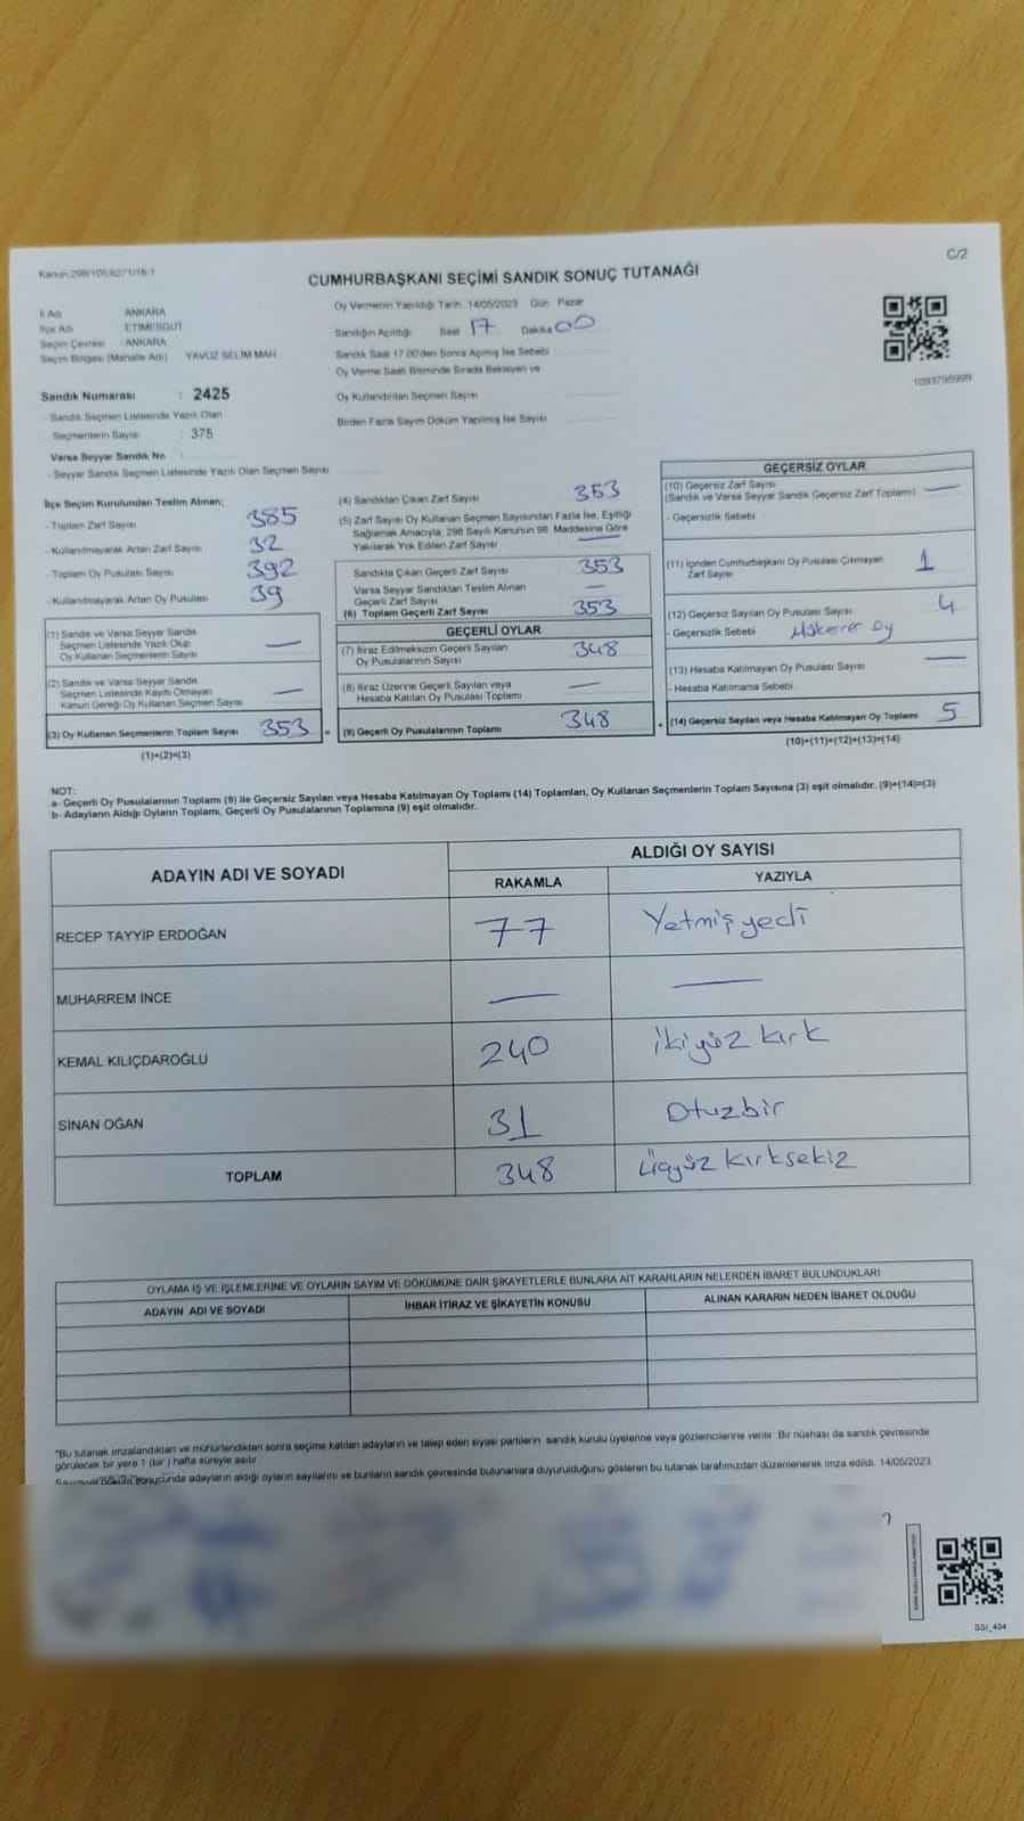 C/2
CUMHURBAŞKANI SEÇİMİ SANDIK SONUÇ TUTANAĞI
İl Adı ANKARA
İlçe Adı ETİMESGUT
Seçim Çevresi ANKARA
Seçim Bölgesi (Mahalle Adı) YAVUZ SELİM MAH
Oy Vermenin Yapıldığı Tarih 14/05/2023 Gün Pazar
Sandığın Açıldığı Saat 17 Dakika 00
Sandık Saat 17.00'den Sonra Açılmış İse Sebebi
Oy Verme Saati Bitiminde Sırada Bekleyen ve
Oy Kullandırılan Seçmen Sayısı
Birden Fazla Sayım Döküm Yapılmış İse Sayısı
Sandık Numarası : 2425
- Sandık Seçmen Listesinde Yazılı Olan
Seçmenlerin Sayısı : 375
Varsa Seyyar Sandık No
- Seyyar Sandık Seçmen Listesinde Yazılı Olan Seçmen Sayısı
İlçe Seçim Kurulundan Teslim Alınan;
- Toplam Zarf Sayısı 385
- Kullanılmayarak Artan Zarf Sayısı 32
- Toplam Oy Pusulası Sayısı 392
- Kullanılmayarak Artan Oy Pusulası 39
(1) Sandık ve Varsa Seyyar Sandık
Seçmen Listesinde Yazılı Olup
Oy Kullanan Seçmenlerin Sayısı —
(2) Sandık ve Varsa Seyyar Sandık
Seçmen Listesinde Kayıtlı Olmayan
Kanun Gereği Oy Kullanan Seçmen Sayısı —
(3) Oy Kullanan Seçmenlerin Toplam Sayısı 353
(1)+(2)=(3)
(4) Sandıktan Çıkan Zarf Sayısı 353
(5) Zarf Sayısı Oy Kullanan Seçmen Sayısından Fazla İse, Eşitliği
Sağlamak Amacıyla, 298 Sayılı Kanunun 98. Maddesine Göre
Yakılarak Yok Edilen Zarf Sayısı —
Sandıkta Çıkan Geçerli Zarf Sayısı 353
Varsa Seyyar Sandıktan Teslim Alınan
Geçerli Zarf Sayısı —
(6) Toplam Geçerli Zarf Sayısı 353
GEÇERLİ OYLAR
(7) İtiraz Edilmeksizin Geçerli Sayılan
Oy Pusulalarının Sayısı 348
(8) İtiraz Üzerine Geçerli Sayılan veya
Hesaba Katılan Oy Pusulası Toplamı —
(9) Geçerli Oy Pusulalarının Toplamı 348
GEÇERSİZ OYLAR
(10) Geçersiz Zarf Sayısı
(Sandık ve Varsa Seyyar Sandık Geçersiz Zarf Toplamı) —
- Geçersizlik Sebebi
(11) İçinden Cumhurbaşkanı Oy Pusulası Çıkmayan
Zarf Sayısı 1
(12) Geçersiz Sayılan Oy Pusulası Sayısı 4
- Geçersizlik Sebebi Mükerrer oy
(13) Hesaba Katılmayan Oy Pusulası Sayısı —
- Hesaba Katılmama Sebebi
(14) Geçersiz Sayılan veya Hesaba Katılmayan Oy Toplamı 5
(10)+(11)+(12)+(13)=(14)
NOT:
a- Geçerli Oy Pusulalarının Toplamı (9) ile Geçersiz Sayılan veya Hesaba Katılmayan Oy Toplamı (14) Toplamları, Oy Kullanan Seçmenlerin Toplam Sayısına (3) eşit olmalıdır. (9)+(14)=(3)
b- Adayların Aldığı Oyların Toplamı, Geçerli Oy Pusulalarının Toplamına (9) eşit olmalıdır.
ADAYIN ADI VE SOYADI ALDIĞI OY SAYISI
RAKAMLA YAZIYLA
RECEP TAYYİP ERDOĞAN 77 Yetmişyedi
MUHARREM İNCE — —
KEMAL KILIÇDAROĞLU 240 ikiyüz kırk
SİNAN OĞAN 31 Otuzbir
TOPLAM 348 üçyüz kırksekiz
OYLAMA İŞ VE İŞLEMLERİNE VE OYLARIN SAYIM VE DÖKÜMÜNE DAİR ŞİKAYETLERLE BUNLARA AİT KARARLARIN NELERDEN İBARET BULUNDUKLARI
ADAYIN ADI VE SOYADI İHBAR İTİRAZ VE ŞİKAYETİN KONUSU ALINAN KARARIN NEDEN İBARET OLDUĞU
"Bu tutanak imzalandıktan ve mühürlendikten sonra seçime katılan adayların ve talep eden siyasi partilerin sandık kurulu üyelerine veya gözlemcilerine verilir. Bir nüshası da sandık çevresinde
görülecek bir yere 1 (bir) hafta süreyle asılır.
sonucunda adayların aldığı oyların sayılarını ve bunların sandık çevresinde bulunanlara duyurulduğunu gösteren bu tutanak tarafımızdan düzenlenerek imza edildi. 14/05/2023